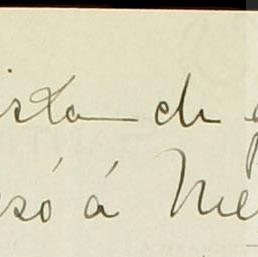 ista de
esó á Me